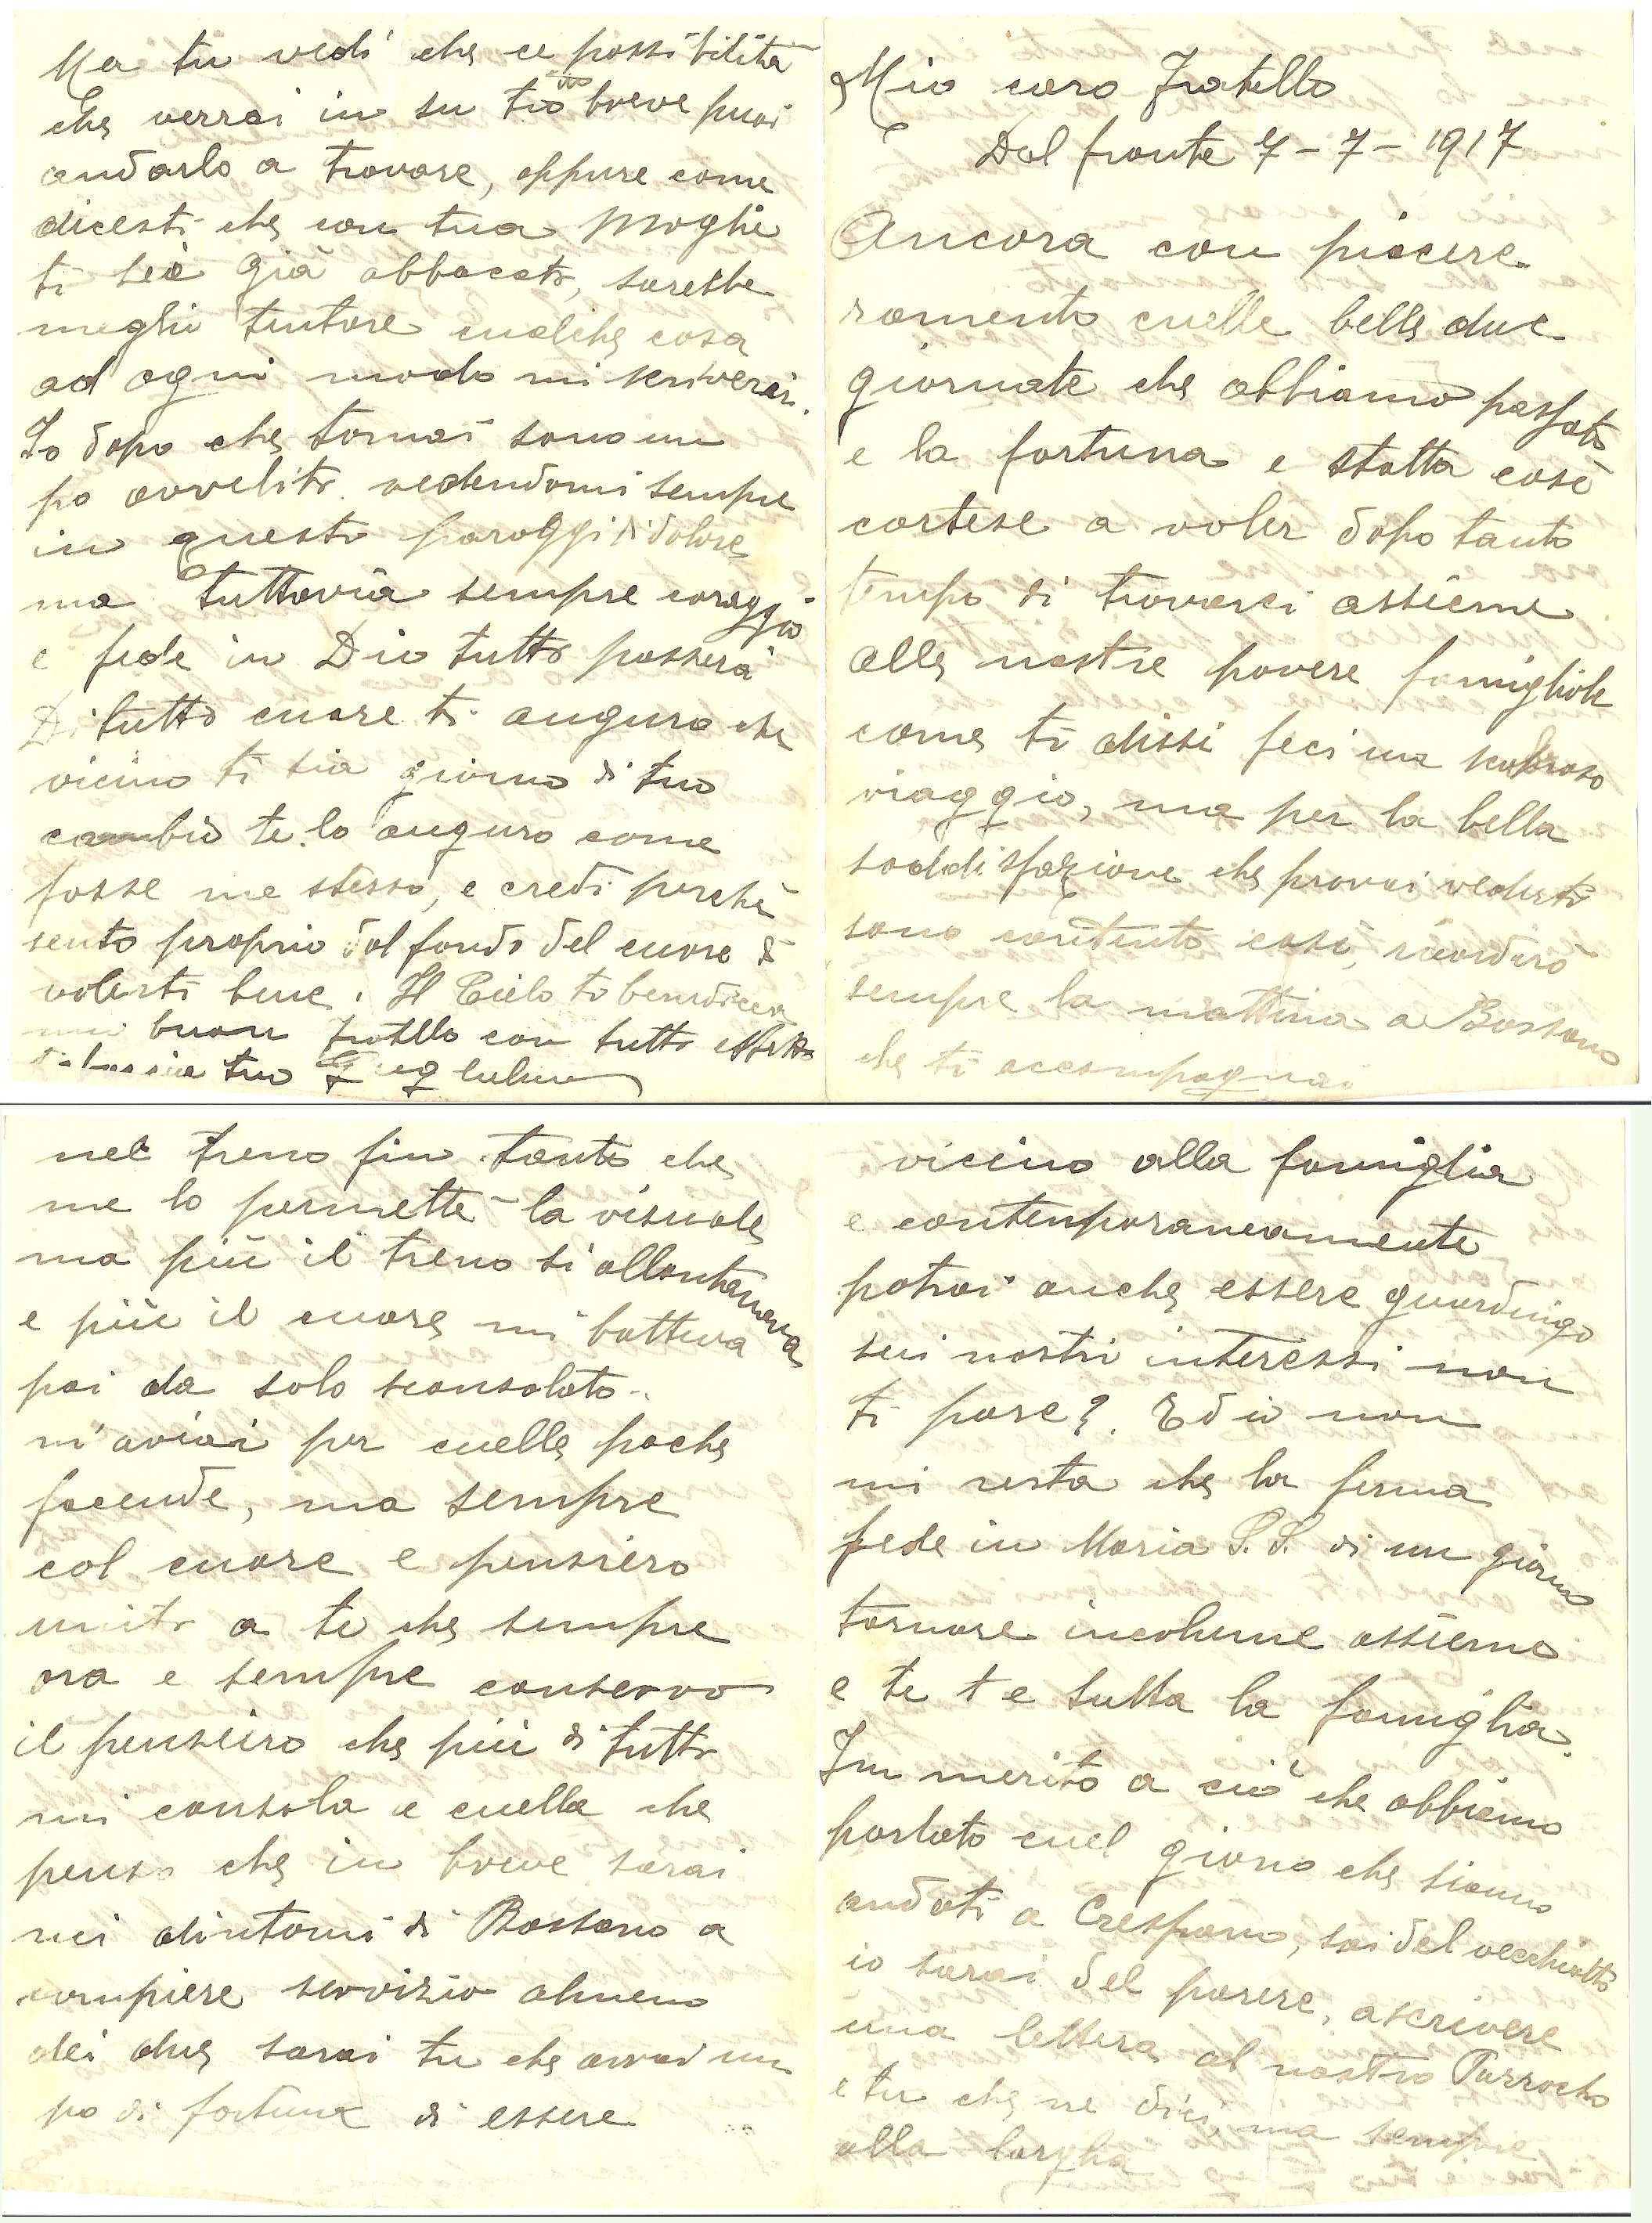 Mio caro Fratello
Dal fronte 7-7-1917
Ancora con piacere
ramento cuelle belle due
giornate che abbiamo passato
e la fortuna e statta così
cortese a voler dopo tanto
tempo di trovarci assieme
alle nostre povere famigliole
come ti dissi feci una scabroso
viaggio, ma per la bella
soddisfazione che provai vederti
sono contento così, ricorderò
sempre la mattina a Bassano
che ti accompagnai
nel treno fin tanto che
me lo permette la visuale
ma più il treno si allontanava
e più il cuore mi batteva
poi da solo sconsolato
m'aviai per cuelle poche
facende, ma sempre
col cuore e pensiero
unito a te che sempre
ora e sempre conservo
il pensiero che più di tutto
mi consola e cuella che
penso che in breve sarai
nei dintorni di Bassano a
compiere servizio almeno
dei due sarai tu che avrai un
po di fortuna di essere
vicino alla famiglia
e contemporaneamente
potrai anche essere guardingo
sui nostri interessi non
ti pare? Ed io non
mi resta che la ferma
fede in Maria S.S. di un giorno
tornare incolume assieme
e te t e tutta la famiglia.
Im merito a ciò che abbiamo
parlato cuel giono che siamo
andati a Crespano, sai del vecchiotto
io sarai del parere, a scrivere
una lettera al nostro Parroco
e tu che ne dici, ma sempre
alla larga
Ma tu vedi che ce possibilità
che verrai in su tra breve puoi
andarlo a trovare, oppure come
dicesti che con tua moglie
ti seè già abbocato, sarebbe
meglio tentare cualche cosa
ad ogni modo mi scriverai.
Io dopo che tornai sono un
po avvelito vedendomi sempre
in questi paraggi di dolore
ma tuttavia sempre coraggio
e fede in Dio tutto passerà
Di tutto cuore ti auguro che
vicino ti sia giorno di tuo
cambio te lo auguro come
fosse me stesso, e credi perchè
sento proprio dal fondo del cuore di
volerti bene. Il Cielo ti benedicca
mio buon fratello con tutto affetto
ti bacia tuo Guglielmo